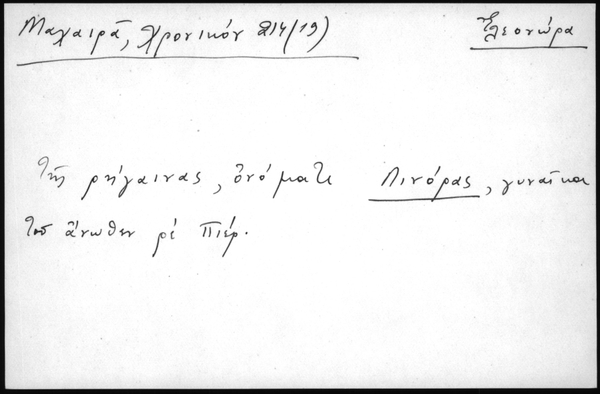 Μαχαιρᾶ, Χρονικόν 214(19)
Ἐλεονώρα
τῆς ρήγαινας, ὀνόματι Λινόρας, γυναῖκα
τοῦ ἄνωθεν ρὲ Πιέρ.